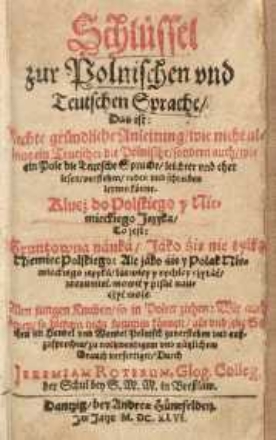 Schlüssel
zur Polnischen vnd
Teutschen Sprache/
Das ist:
gründliche Anleitung/ wie nicht al-
ein Teutscher die Polnische/ sondern auch/ wie
ein Pole die Teutsche Sprache/ leichter vnd eher
lesen/ verstehen/ reden vnd schreiben
lerne
Klucż do Polskiego y Nie-
mieckiego Języká/
To jest:
Gruntowna náuká/ Jáko śie nie tylko
Niemiec Polskiego: Ale jáko śie y Polak Nie-
mieckiego języká/ y rychley cżytáć/
rozumieć mowić y pisáć náu-
cżyć może.
jungen Knaben/ so in Polen ziehen:
nicht
Handel vnd Wandel Polnisch zuverstehen vnd auß-
zusprechen/ zu nothwendigem vnd nützlichem
Brauch verfertiget/ Durch
JEREMIAM ROTERUM, Glog. Colleg.
der Schul bey S. M. M. in Breßlaw.
Dantzig/ bey Andrea Hünefelden,
Im Jahr M. DC. XLVI.